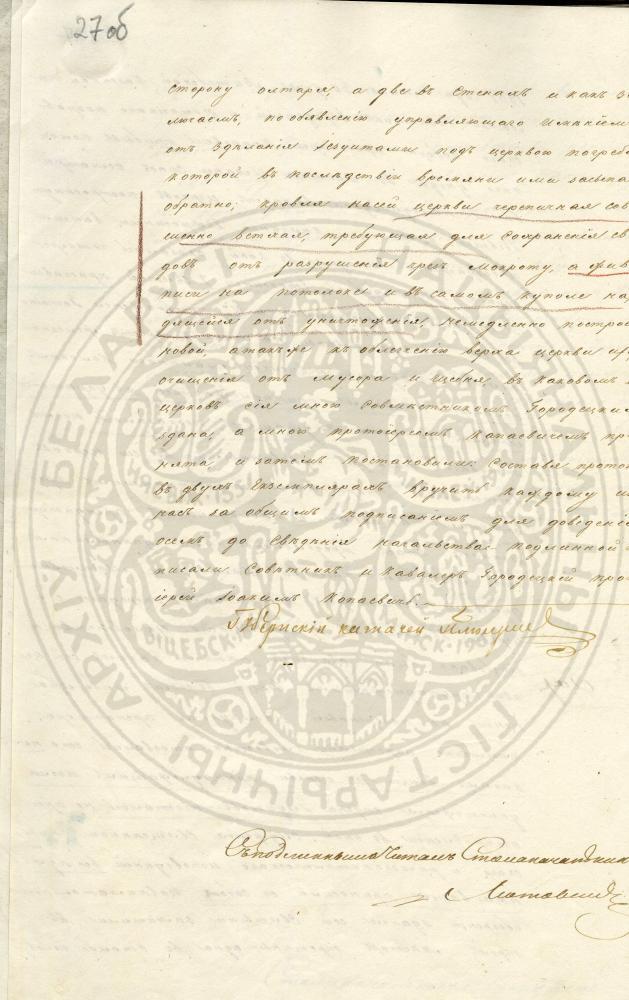 27об
сторону олтаря, а две въ стенахъ и какъ
лючаемъ, по объявленію управляющаго имѣніемъ
отъ зделанія Іезуитами подъ церквою погреб
которой въ последствіи времяни ими засыпа
обратно; кровля насей церкви черепичная сов
шенно ветхая, требующая для сохраненія св
довъ отъ разрушенія чрезъ мокроту, а жив
писи на потолоке и въ самомъ куполе на
дящейся отъ уничтоженія, немедленно построе
новой, атакъже къ облегченію верха церкви
очищенія отъ мусора и щебня въ каковомъ
церковь сія мною Совѣтникомъ Городецки
здана, а мною протоіереемъ Копаевичемъ пр
нята и затемъ постановили: Составя прото
въ двухъ Екземплярахъ вручить каждому и
насъ за общимъ подписаніемъ для доведені
осемъ до сведенія начальства. подлинной
писали Совѣтникъ и Кавалеръ Городецкій про
іерей Іоакимъ Копаевичъ.
Губернскій казначей
Съ подлиннымъ читалъ Столоначальник
БЕЛАРУСІ
ГІСТАРЫЧНЫ АРХІЎ
ВІЦЕБСК